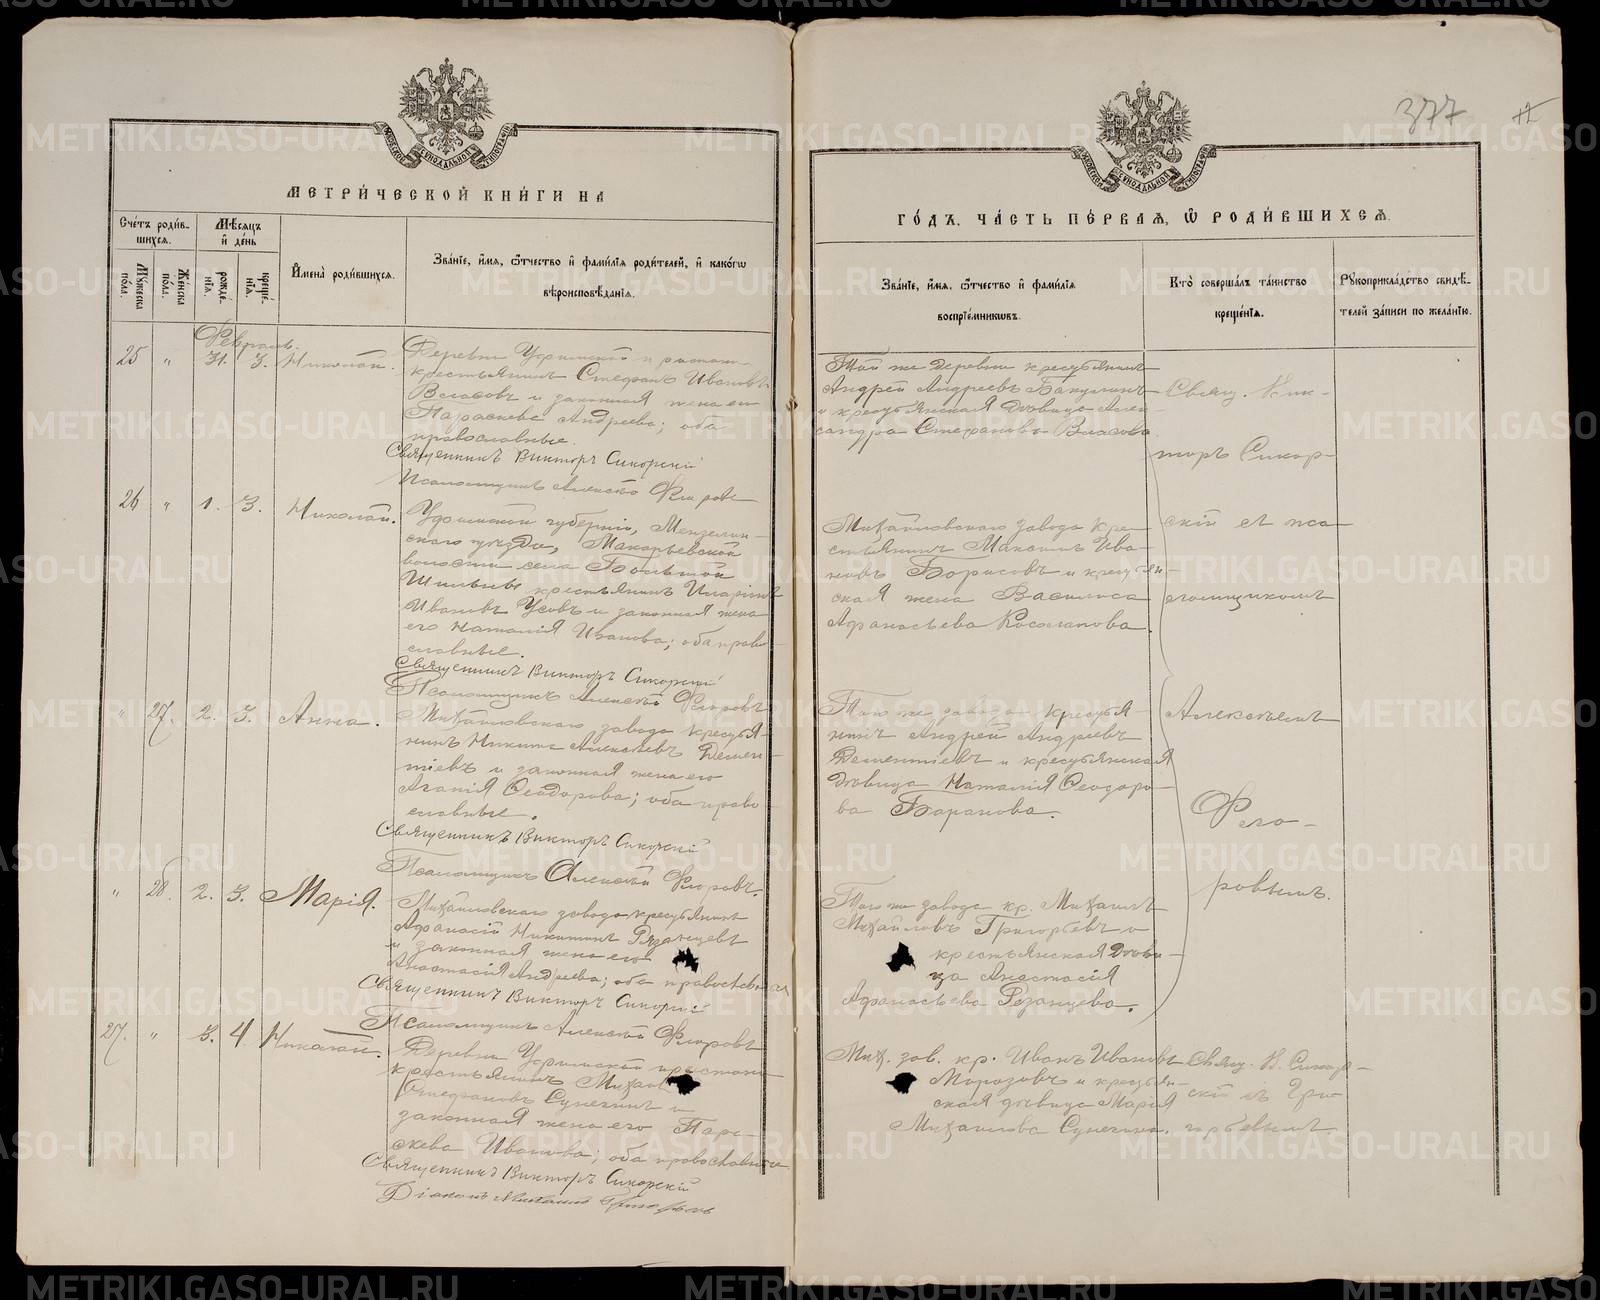 377
МЕТРИ́ЧЕСКОЙ КНИ́ГИ НА
Сче́тъ роди́в-
шихся.
Мѣ́сяцъ
и҆ де́нь
Мꙋ́жеска по́ла.
Же́нска по́ла.
рожде́-
нїѧ.
креще́-
нїѧ.
И҆мена̀ роди́вшихся.
Зва́нїе, и҆́мя, ѻ҆́тчество и҆ фами́лїѧ роди́телей, и҆ како́гѡ
вѣроисповѣ́данїѧ.
Февраль.
25 " 31. 3. Николай.
Деревни Уфимской пристани
крестьянинъ Стефанъ Ивановъ
Власовъ и законная жена его
Параскева Андреева; оба
православные.
Священникъ Викторъ Сикорскій
Псаломщикъ Алексѣй Флоровъ
26 " 1. 3. Николай.
Уфимской губерніи, Мензелин-
скаго уѣзда, Макарьевской
волости села Большой
крестьянинъ Иларіонъ
Ивановъ Усовъ и законная жена
его Наталія Иванова; оба право-
славные.
Священникъ Викторъ Сикорскій
Псаломщикъ Алексѣй Флоровъ
" 27. 2. 3. Анна.
Михайловскаго завода крестья-
нинъ Никита Алексѣевъ Демен-
тіевъ и законная жена его
Агапія Ѳеодорова; оба право-
славные.
Священникъ Викторъ Сикорскій
Псаломщикъ Алексѣй Флоровъ.
" 28. 2. 3. Марія.
Михайловскаго завода крестьянинъ
Афанасій Никитинъ Рязанцевъ
и законная жена его
Анастасія Андреева; оба православныя
Священникъ Викторъ Сикорскій
Псаломщикъ Алексѣй Флоровъ
27. " 3. 4. Николай.
Деревни Уфимской пристани
крестьянинъ Михаилъ
Стефановъ Сунегинъ и
законная жена его Пара-
скева Иванова; оба православные
Священникъ Викторъ Сикорскій
Діаконъ Михаилъ Григорьевъ
ГО́ДЪ, ЧА́СТЬ ПЕ́РВАЯ, Ѡ҆ РОДИ́ВШИХСЯ.
Зва́нїе, и҆́мя, ѻ҆́тчество и҆ фами́лїѧ
воспрїе́мникѡвъ.
Кто̀ соверша́лъ та́инство
креще́нїѧ.
Рꙋкоприкла́дство свидѣ́-
телей за́писи по жела́нїю.
Той же деревни крестьянинъ
Андрей Андреевъ Бакулинъ
и крестьянская дѣвица Алек-
сандра Стефанова Власова.
Свящ. Вик-
торъ Сикор-
скій съ пса-
ломщикомъ
Алексѣемъ
Фло-
ровымъ.
Михайловскаго завода кре-
стьянинъ Максимъ Ива-
новъ Борисовъ и крестьян-
ская жена Василиса
Афанасьева Косолапова.
Того же завода крестья-
нинъ Андрей Андреевъ
Дементіевъ и крестьянская
дѣвица Наталія Ѳеодоро-
ва Баранова.
Того же завода кр. Михаилъ
Михайловъ Григорьевъ и
крестьянская дѣви-
ца Анастасія
Афанасьева Рязанцева.
Мих. зав. кр. Иванъ Ивановъ
Морозовъ и крестьян-
ская дѣвица Марія
Михаилова Сунегина.
Свящ. В. Сикор-
скій съ Гри-
горьевымъ.
METRIKI.GASO-URAL.RU